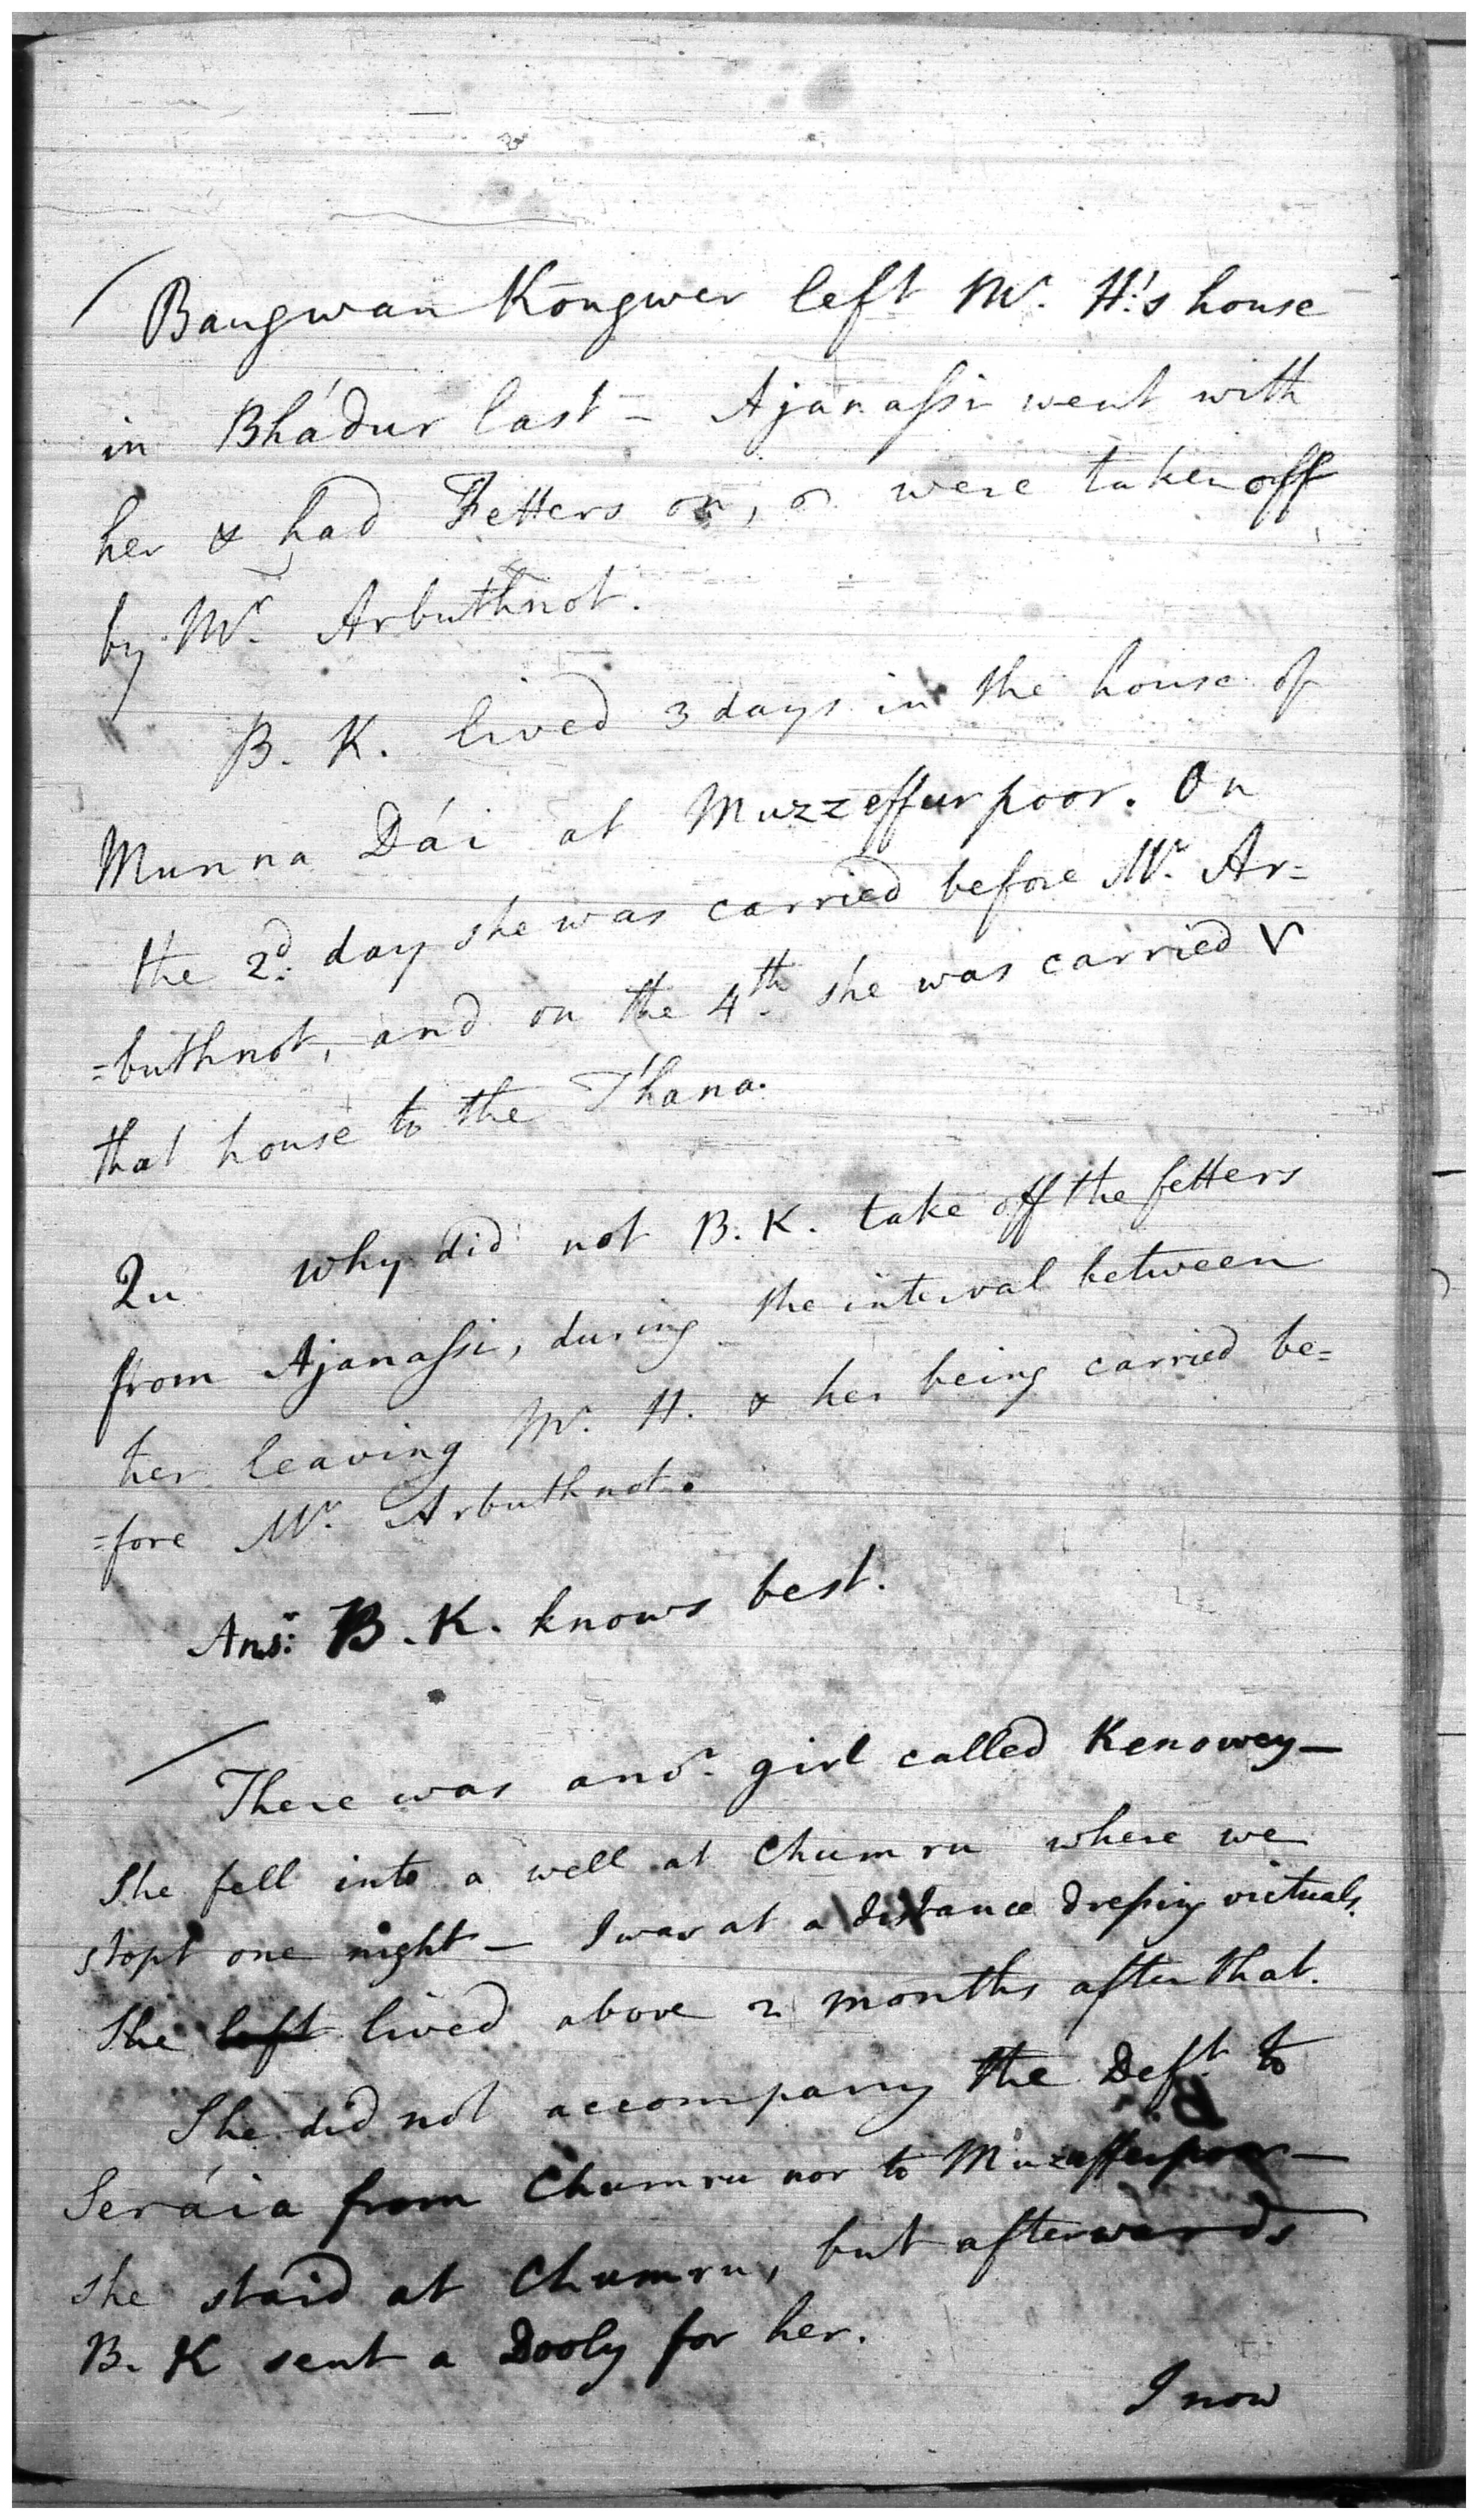 Baugwan Kongwer left Mr. H.'s house
in Bhádur last – Ajanassi went with
her & had Fetters on, & were taken off
by Mr. Arbuthnot.
B. K. lived 3 days in the house of
Munna Dái at Muzzeffurpoor. On
the 2d: day she was carried before Mr. Ar=
=buthnot, and on the 4th. she was carried
that house to the Thana.
Qu why did not B. K. take off the fetters
from Ajanassi, during the interval between
her leaving Mr. H. & her being carried be=
=fore Mr. Arbuthnot.
Ansr: B. K. knows best.
There was anor. girl called Kenowey –
She fell into a well at Chumru where we
stopt one night – I was at a distance dressing victuals.
She left lived above 2 months after that.
She did not accompany the Deft. to
Seráia from Chumru nor to Muzefferpoor –
she staid at Chumru, but afterwards
B. K sent a Dooly for her.
I now